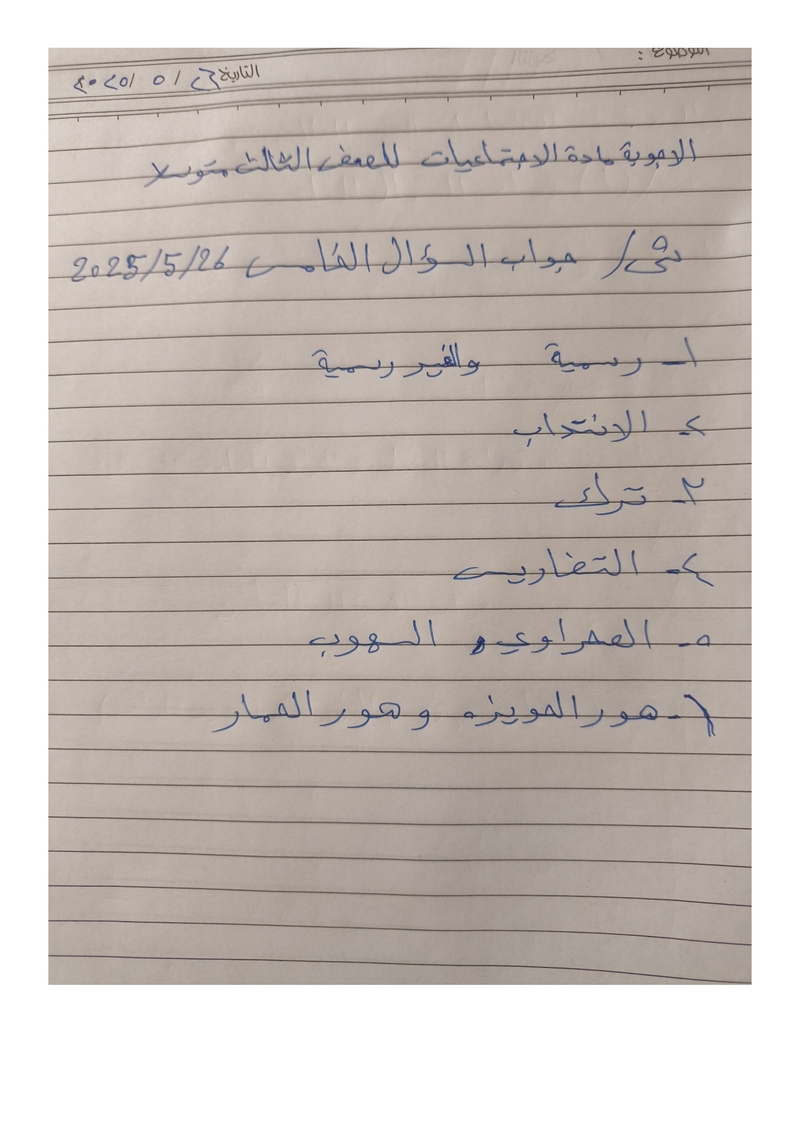 الموضوع :
التاريخ ٢٦ / ٥ / ٢٠٢٥
الاجوبة مادة الاجتماعيات للصف الثالث متوسط
س٥/ جواب السؤال الخامس 2025/5/26
١- رسمية والغير رسمية
٢- الانتداب
٣- ترك
٤- التضاريس
٥- الصحراوي، السهوب
٦- هور الحويزه وهور الحمار